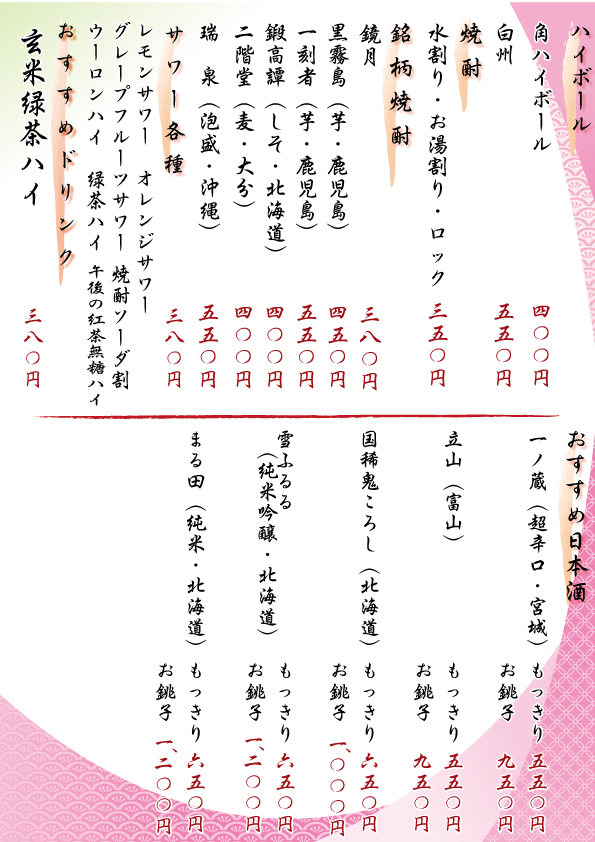 ハイボール
角ハイボール 四〇〇円
白州 五五〇円
焼酎
水割り・お湯割り・ロック 三五〇円
銘柄焼酎
鏡月 三八〇円
黒霧島（芋・鹿児島） 四五〇円
一刻者（芋・鹿児島） 五五〇円
鍛高譚（しそ・北海道） 四〇〇円
二階堂（麦・大分） 四〇〇円
瑞泉（泡盛・沖縄） 五五〇円
サワー各種 三八〇円
レモンサワー オレンジサワー
グレープフルーツサワー 焼酎ソーダ割
ウーロンハイ 緑茶ハイ 午後の紅茶無糖ハイ
おすすめドリンク
玄米緑茶ハイ 三八〇円
おすすめ日本酒
一ノ蔵（超辛口・宮城） もっきり 五五〇円
お銚子 九五〇円
立山（富山） もっきり 五五〇円
お銚子 九五〇円
国稀鬼ころし（北海道） もっきり 六五〇円
お銚子 一、〇〇〇円
雪ふるる
（純米吟醸・北海道） もっきり 六五〇円
お銚子 一、二〇〇円
まる田（純米・北海道） もっきり 六五〇円
お銚子 一、二〇〇円